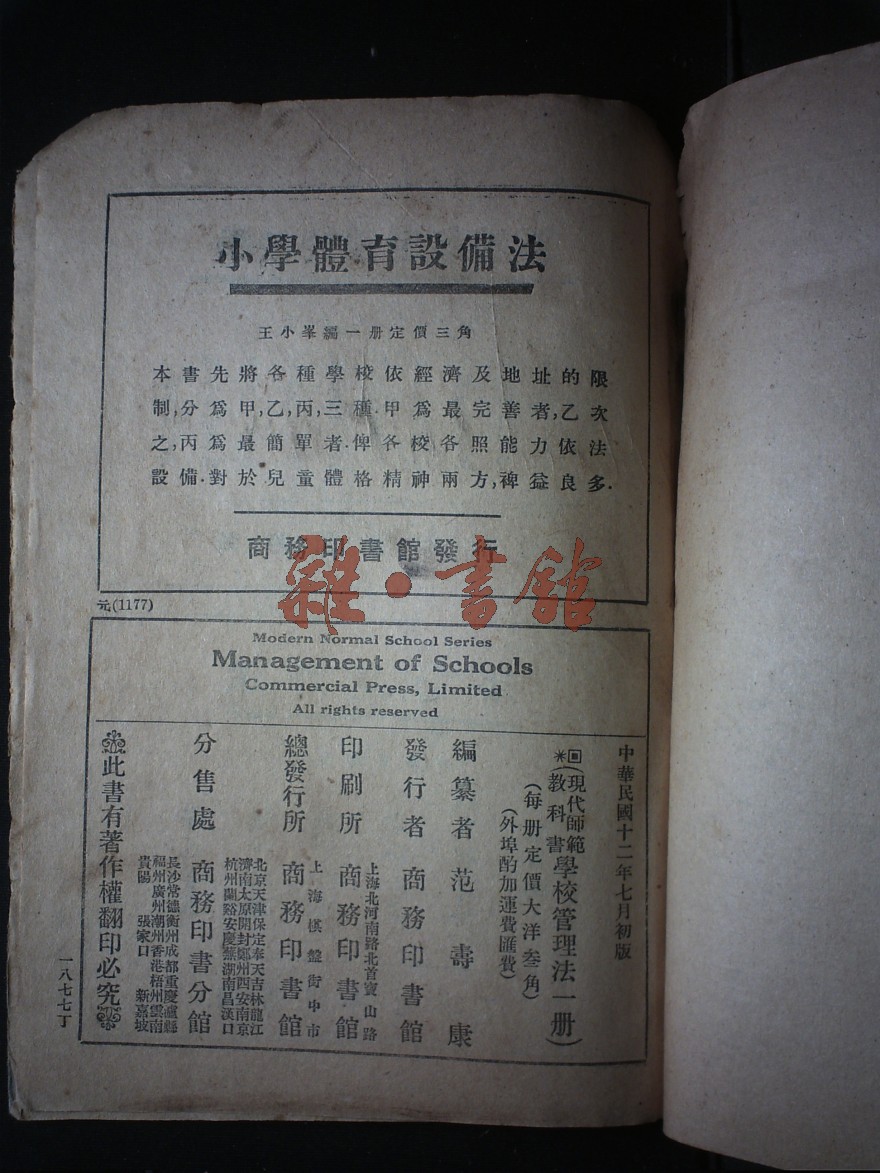 小學體育設備法
王小峯編一册定價三角
本書先將各種學校依經濟及地址的限
制,分爲甲,乙,丙,三種.甲爲最完善者,乙次
之,丙爲最簡單者.俾各校各照能力依法
設備.對於兒童體格精神兩方,裨益良多.
商務印書館發行
雜·書館
元(1177)
Modern Normal School Series
Management of Schools
Commercial Press, Limited
All rights reserved
中華民國十二年七月初版
(現代師範教科書)學校管理法一册)
(每册定價大洋叁角)
(外埠酌加運費匯費)
編纂者 范壽康
發行者 商務印書館
上海北河南路北首寶山路
印刷所 商務印書館
上海棋盤街中市
總發行所 商務印書館
北京天津保定奉天吉林龍江
濟南太原開封鄭州西安南京
杭州蘭谿安慶蕪湖南昌漢口
分售處 商務印書分館
長沙常德衡州成都重慶瀘縣
福州廣州潮州香港梧州雲南
貴陽 張家口 新嘉坡
此書有著作權翻印必究
一八七七丁